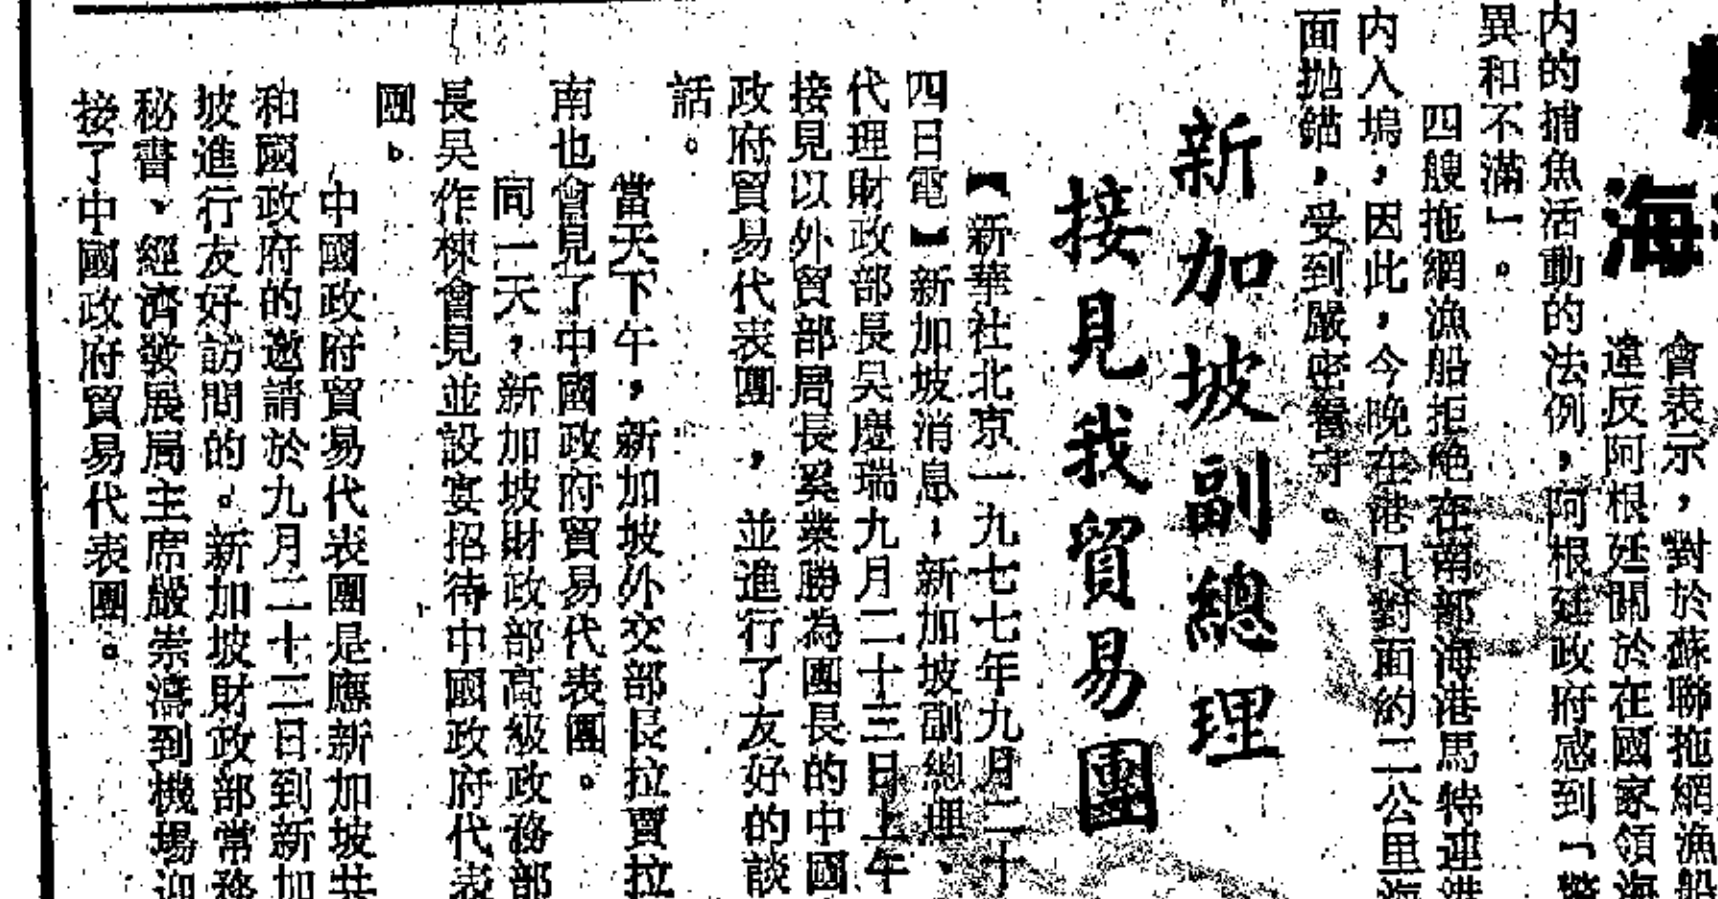 海
會表示，對於蘇聯拖網漁船
違反阿根廷關於在國家領海
內的捕魚活動的法例，阿根廷政府感到「驚
異和不滿」。
四艘拖網漁船拒絕在南部海港馬特連港
內入塢，因此，今晚在港口對面約二公里海
面拋錨，受到嚴密看守。
新加坡副總理
接見我貿易團
【新華社北京一九七七年九月二十
四日電】新加坡消息：新加坡副總理、
代理財政部長吳慶瑞九月二十三日上午
接見以外貿部局長奚業勝為團長的中國
政府貿易代表團，並進行了友好的談
話。
當天下午，新加坡外交部長拉賈拉
南也會見了中國政府貿易代表團。
同一天，新加坡財政部高級政務部
長吳作棟會見並設宴招待中國政府代表
團。
中國政府貿易代表團是應新加坡共
和國政府的邀請於九月二十二日到新加
坡進行友好訪問的。新加坡財政部常務
秘書、經濟發展局主席嚴崇濤到機場迎
接了中國政府貿易代表團。